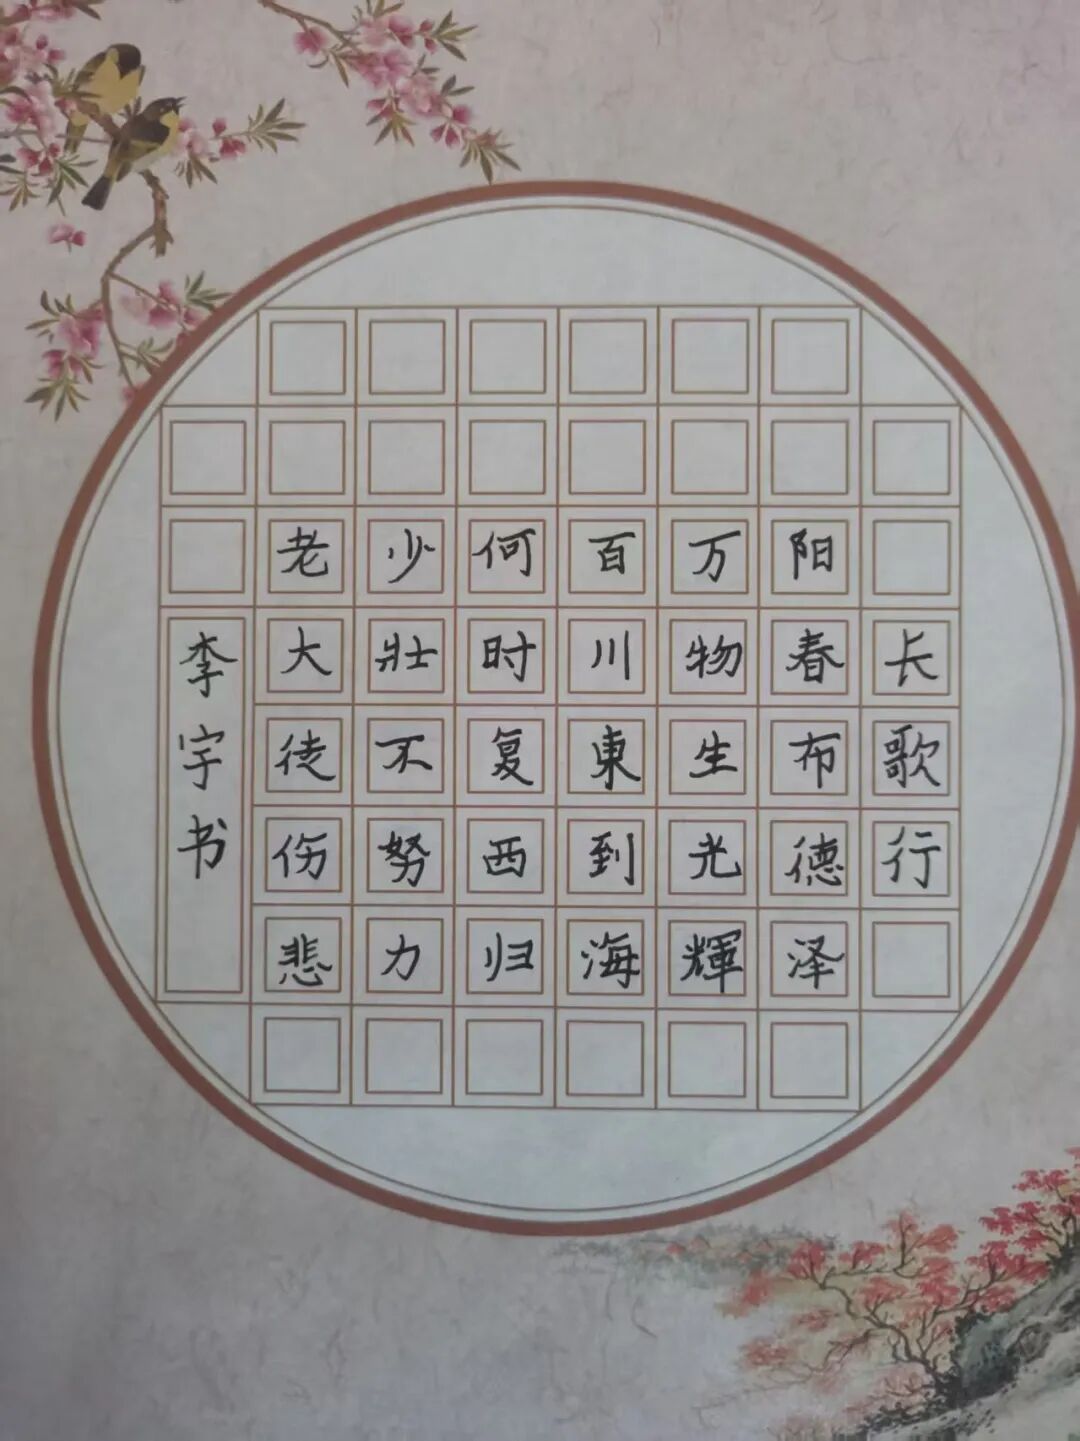 长歌行
阳春布德泽
万物生光輝
百川東到海
何时复西归
少壮不努力
老大徒伤悲
李宇书